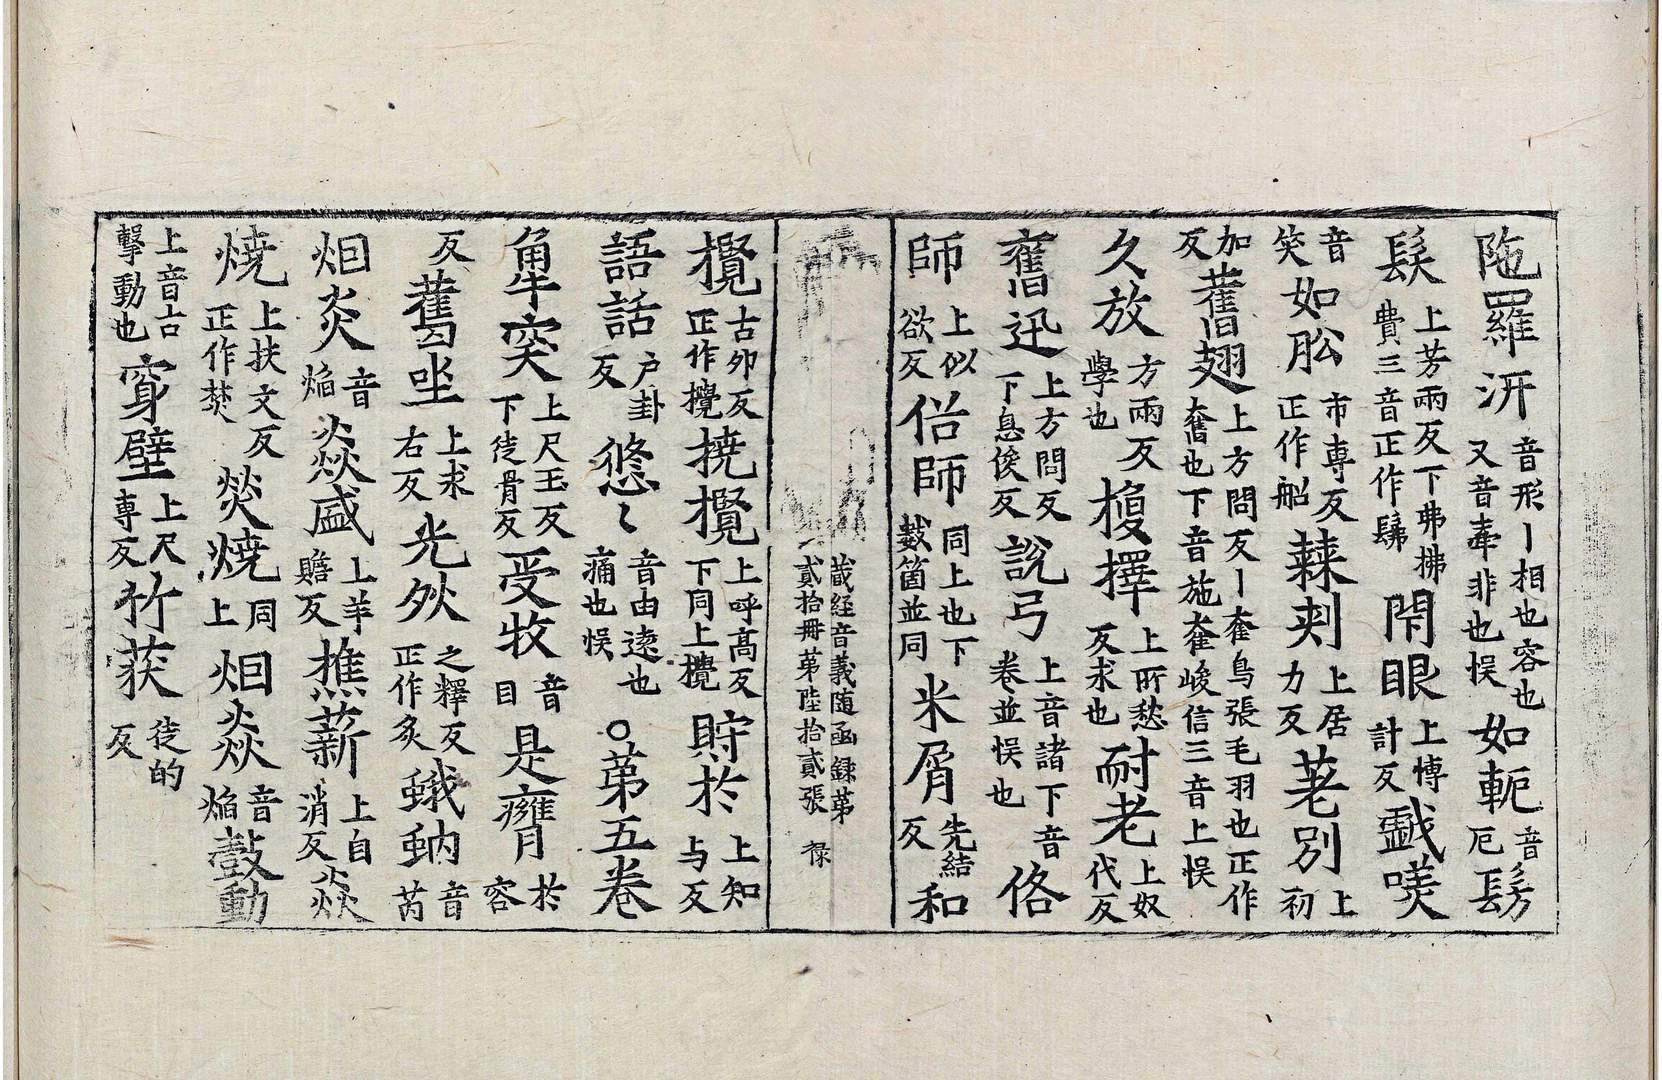 陁羅汧音形丨相也容也又音牽非也悮如軛音厄髣
髮上芳兩反下弗拂費三音正作髴閇眼上博計反戱𠸍
音笑如舩市専反正作船棘刾上居力反荖別上初
加反舊翅上方問反丨奞鳥張毛羽也正作奮也下音施奞峻信三音上悮
久放方兩反學也榎擇上所愁反求也耐老上奴代反
舊迅上方問反下息俊反說弓上音諸下音卷並悮也佫
師上似欲反俗師同上也下數箇並同米屑先結反和
藏経音義随函録苐
貳拾冊苐陸拾貳張 禄
攪古夘反正作攪撓攪上呼髙反下同上攪貯於上知与反
語話户卦反悠〻音由逺也痛也悮〇苐五巻
觕突上尺玉反下徒骨反受牧音目是癰於容
反舊坐上求右反光㶡之釋反正作炙蛾蚋音芮
烟炎音焰焱盛上羊贍反樵薪上自消反焱
焼上扶文反正作焚燓焼同上烟焱音焰鼓動
上音古擊動也穿壁上尺専反竹荻徒的反